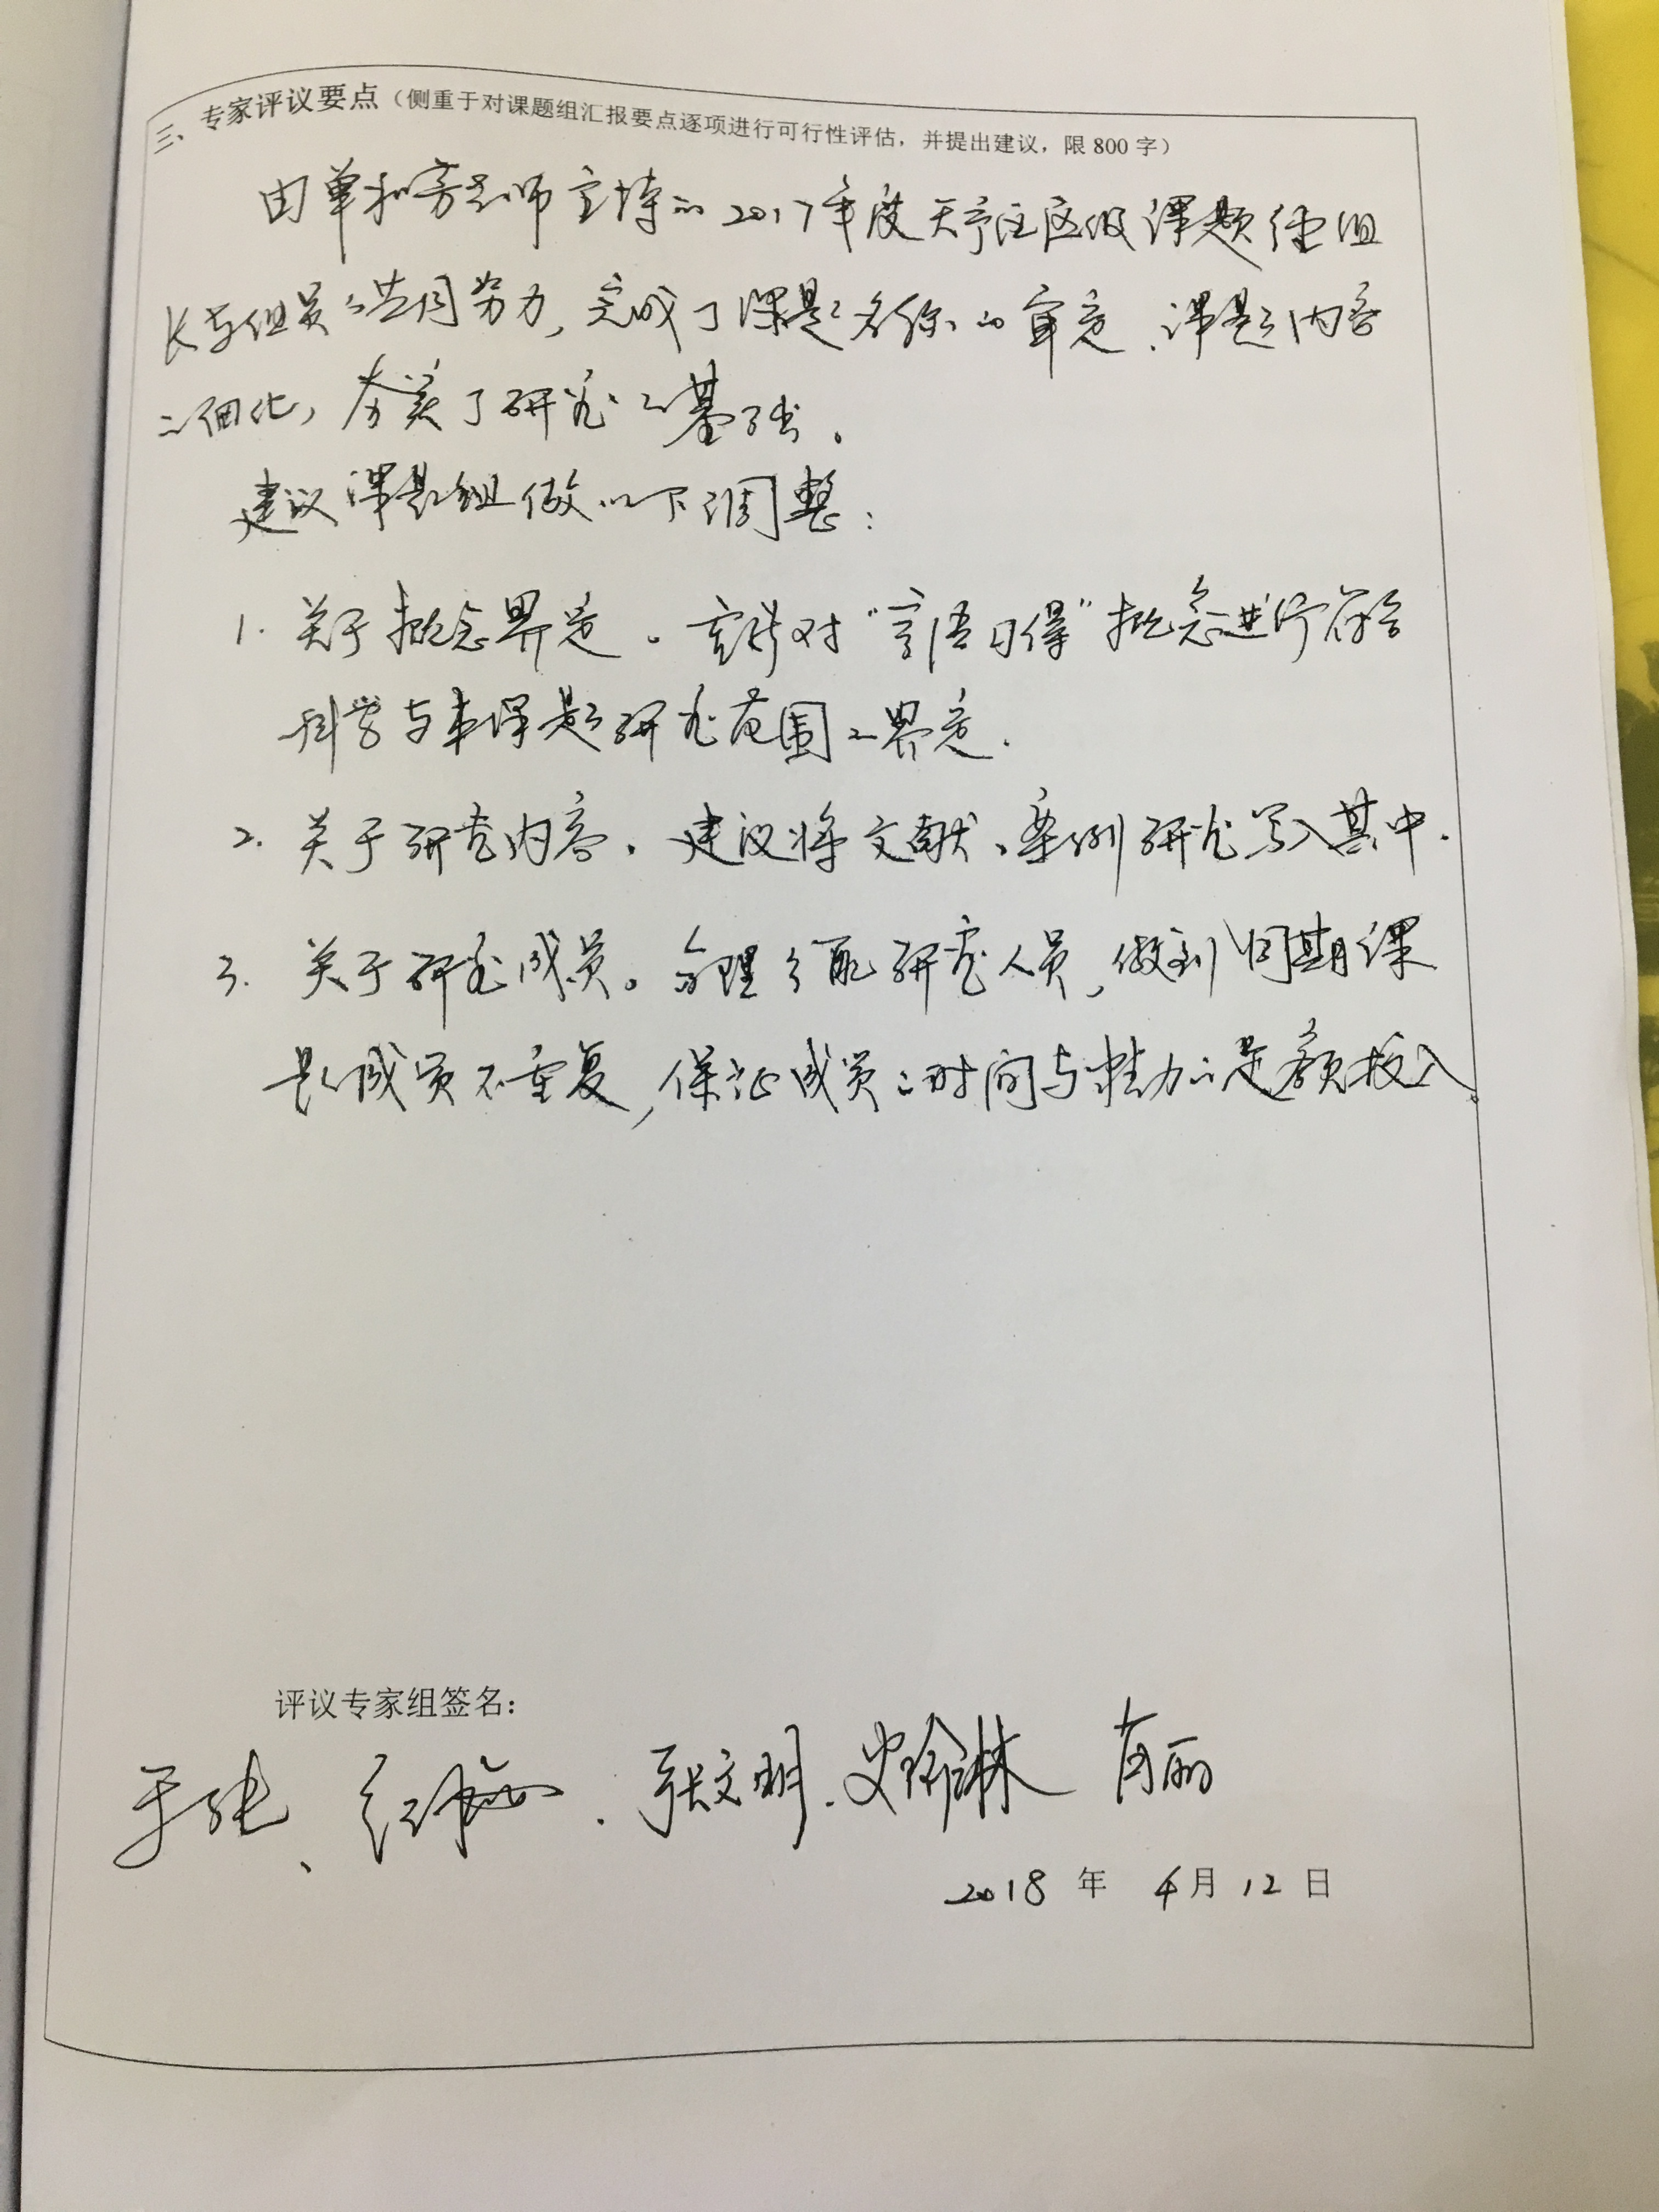 三、专家评议要点（侧重于对课题组汇报要点逐项进行可行性评估，并提出建议，限 800 字）
由单和芳老师主持的2017年度天宁区区级课题经组
长与组员的共同努力，完成了课题名称的审定、课题内容
的细化，夯实了研究的基础。
建议课题组做以下调整：
1. 关于概念界定。对“言语习得”概念进行符合
科学与本课题研究范围的界定.
2. 关于研究内容. 建议将文献、案例研究写入其中.
3. 关于研究成员。合理分配研究人员，做到同期课
题成员不重复，保证成员的时间与精力的足额投入。
评议专家组签名：
张文明、史瑜琳
2018 年 4 月 12 日